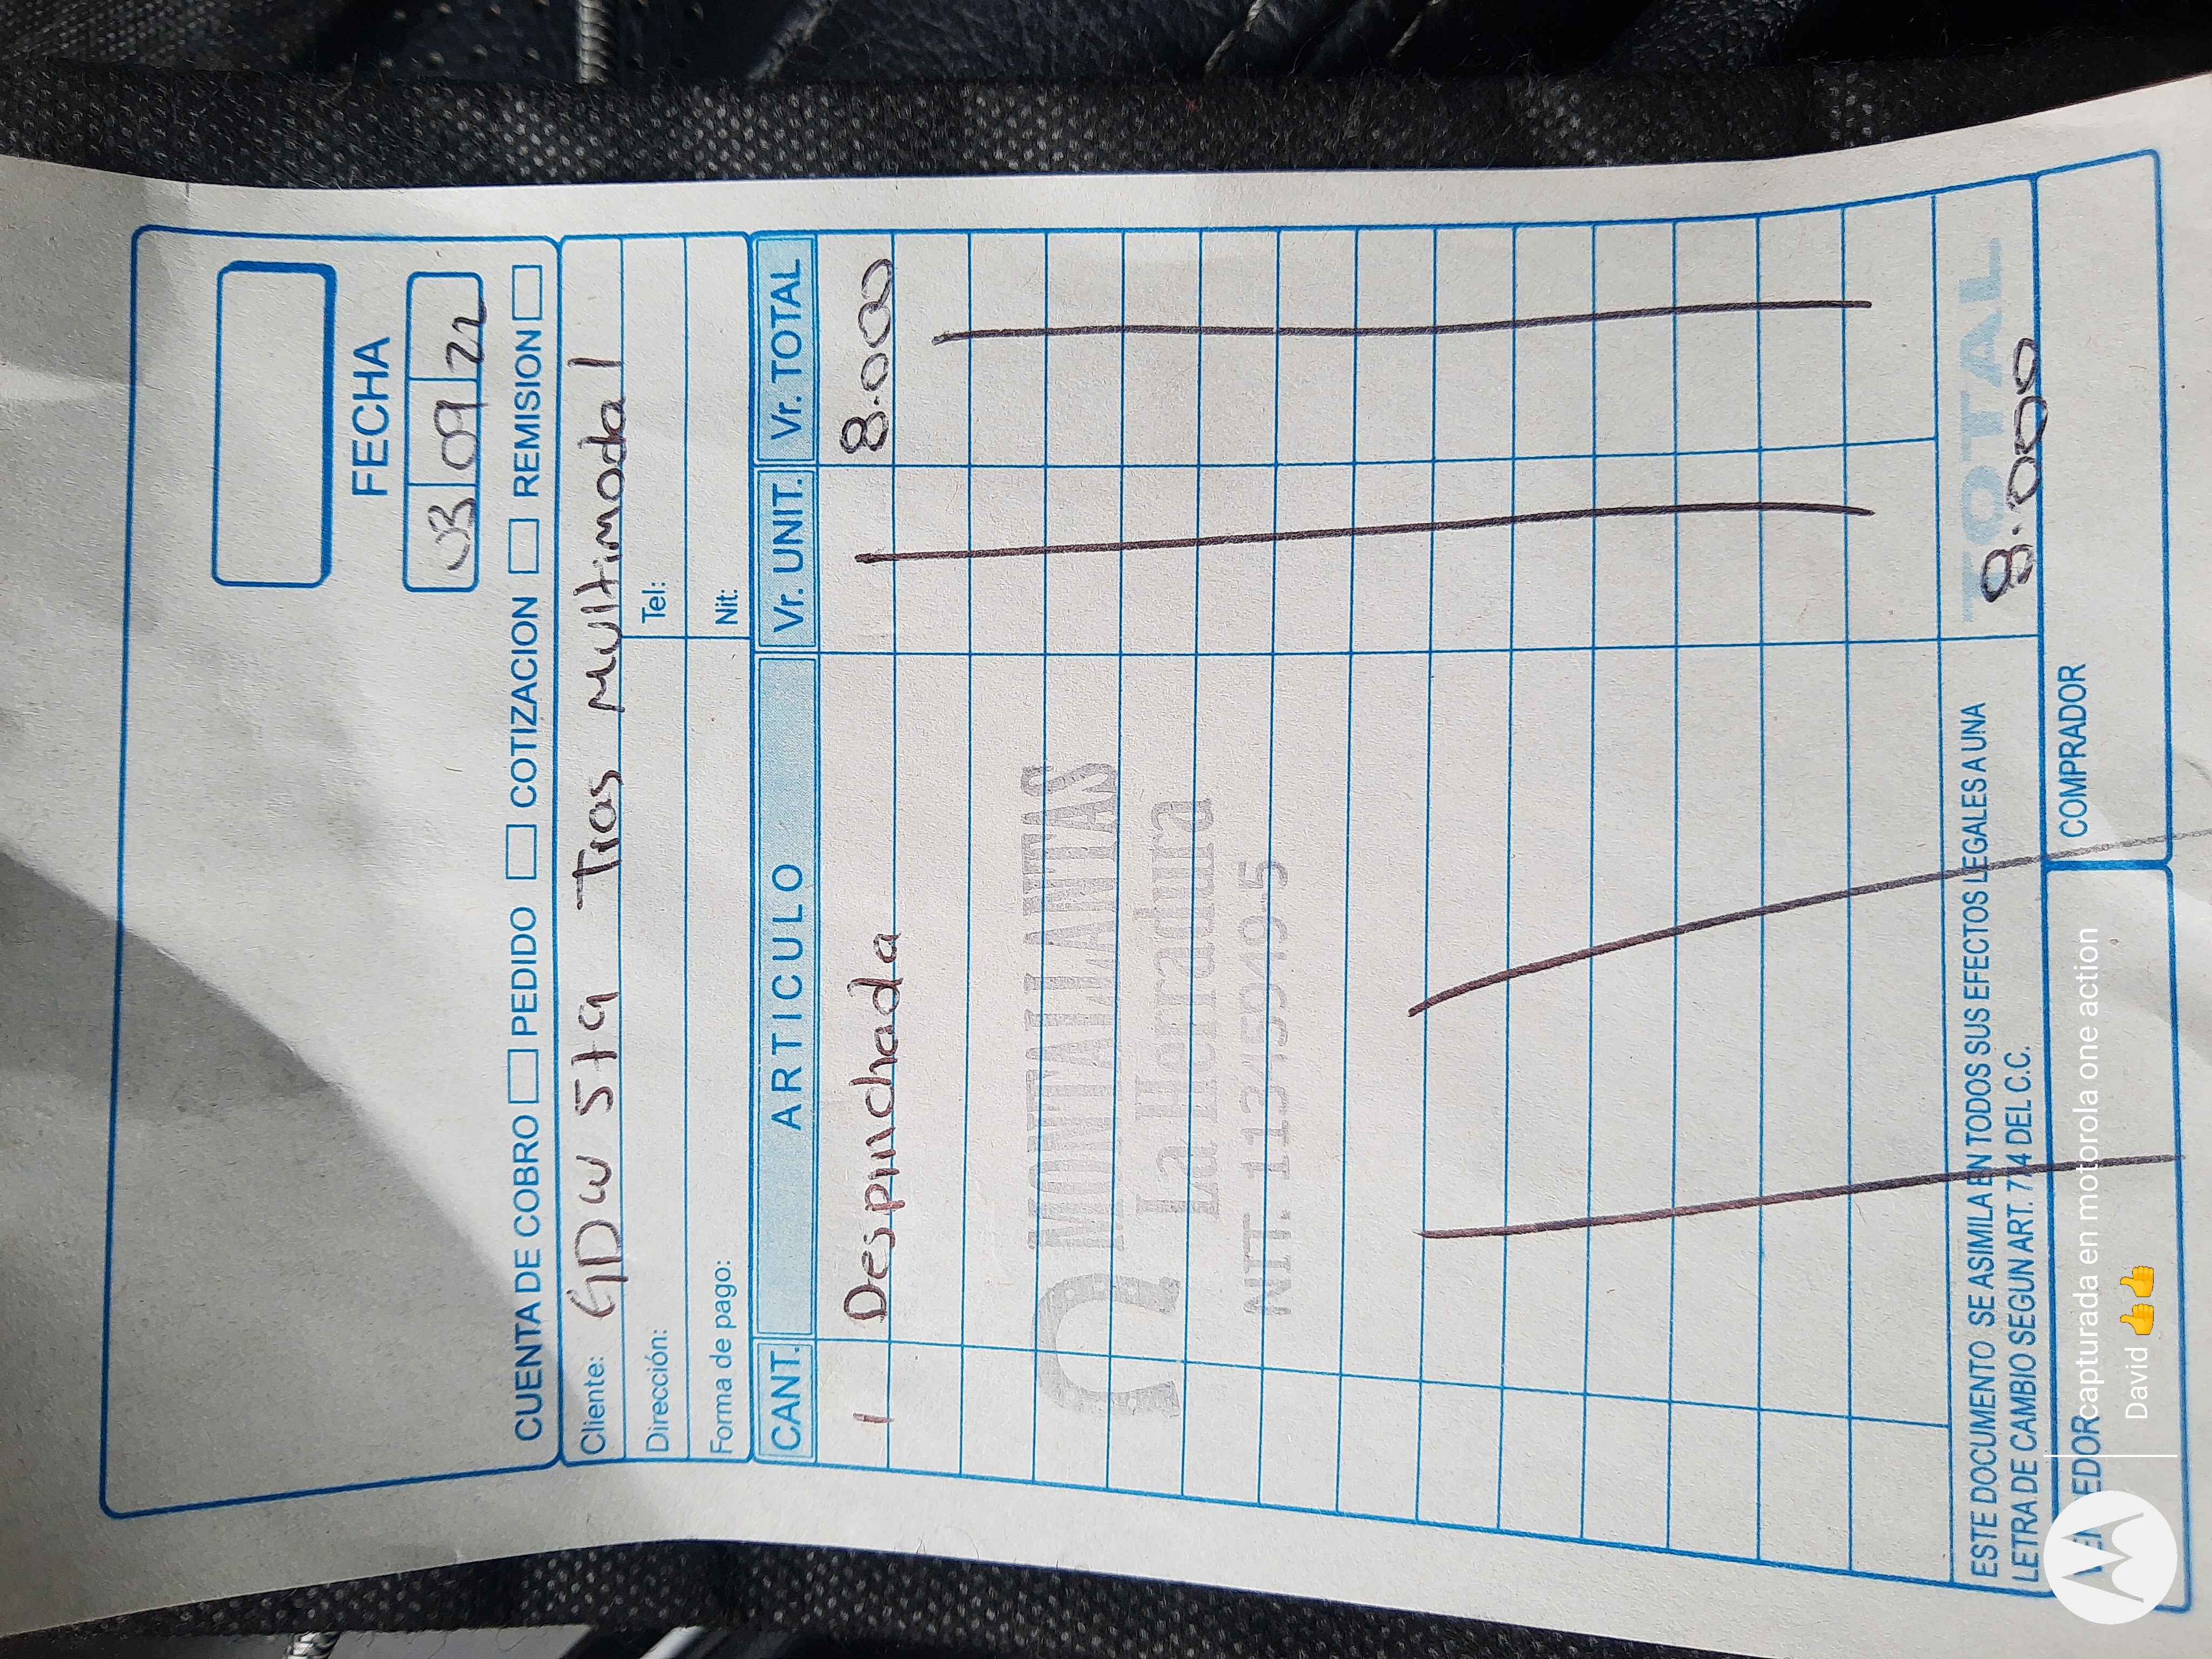 FECHA
03 09 22
CUENTA DE COBRO PEDIDO COTIZACION REMISION
Cliente: GDW 579 Tras Multimodal
Dirección: Tel:
Forma de pago: Nit:
CANT. ARTICULO Vr. UNIT. Vr. TOTAL
1 Despinchada 8.000
MONTALLANTAS
La Herradura
NIT. 11345949-5
ESTE DOCUMENTO SE ASIMILA EN TODOS SUS EFECTOS LEGALES A UNA
LETRA DE CAMBIO SEGUN ART. 774 DEL C.C.
TOTAL
8.000
COMPRADOR
capturada en motorola one action
David 👍👍